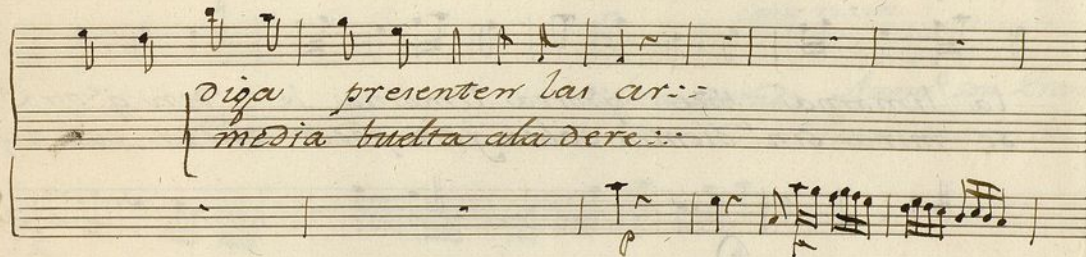 diga presenten las ar::
media buelta ala dere::
p